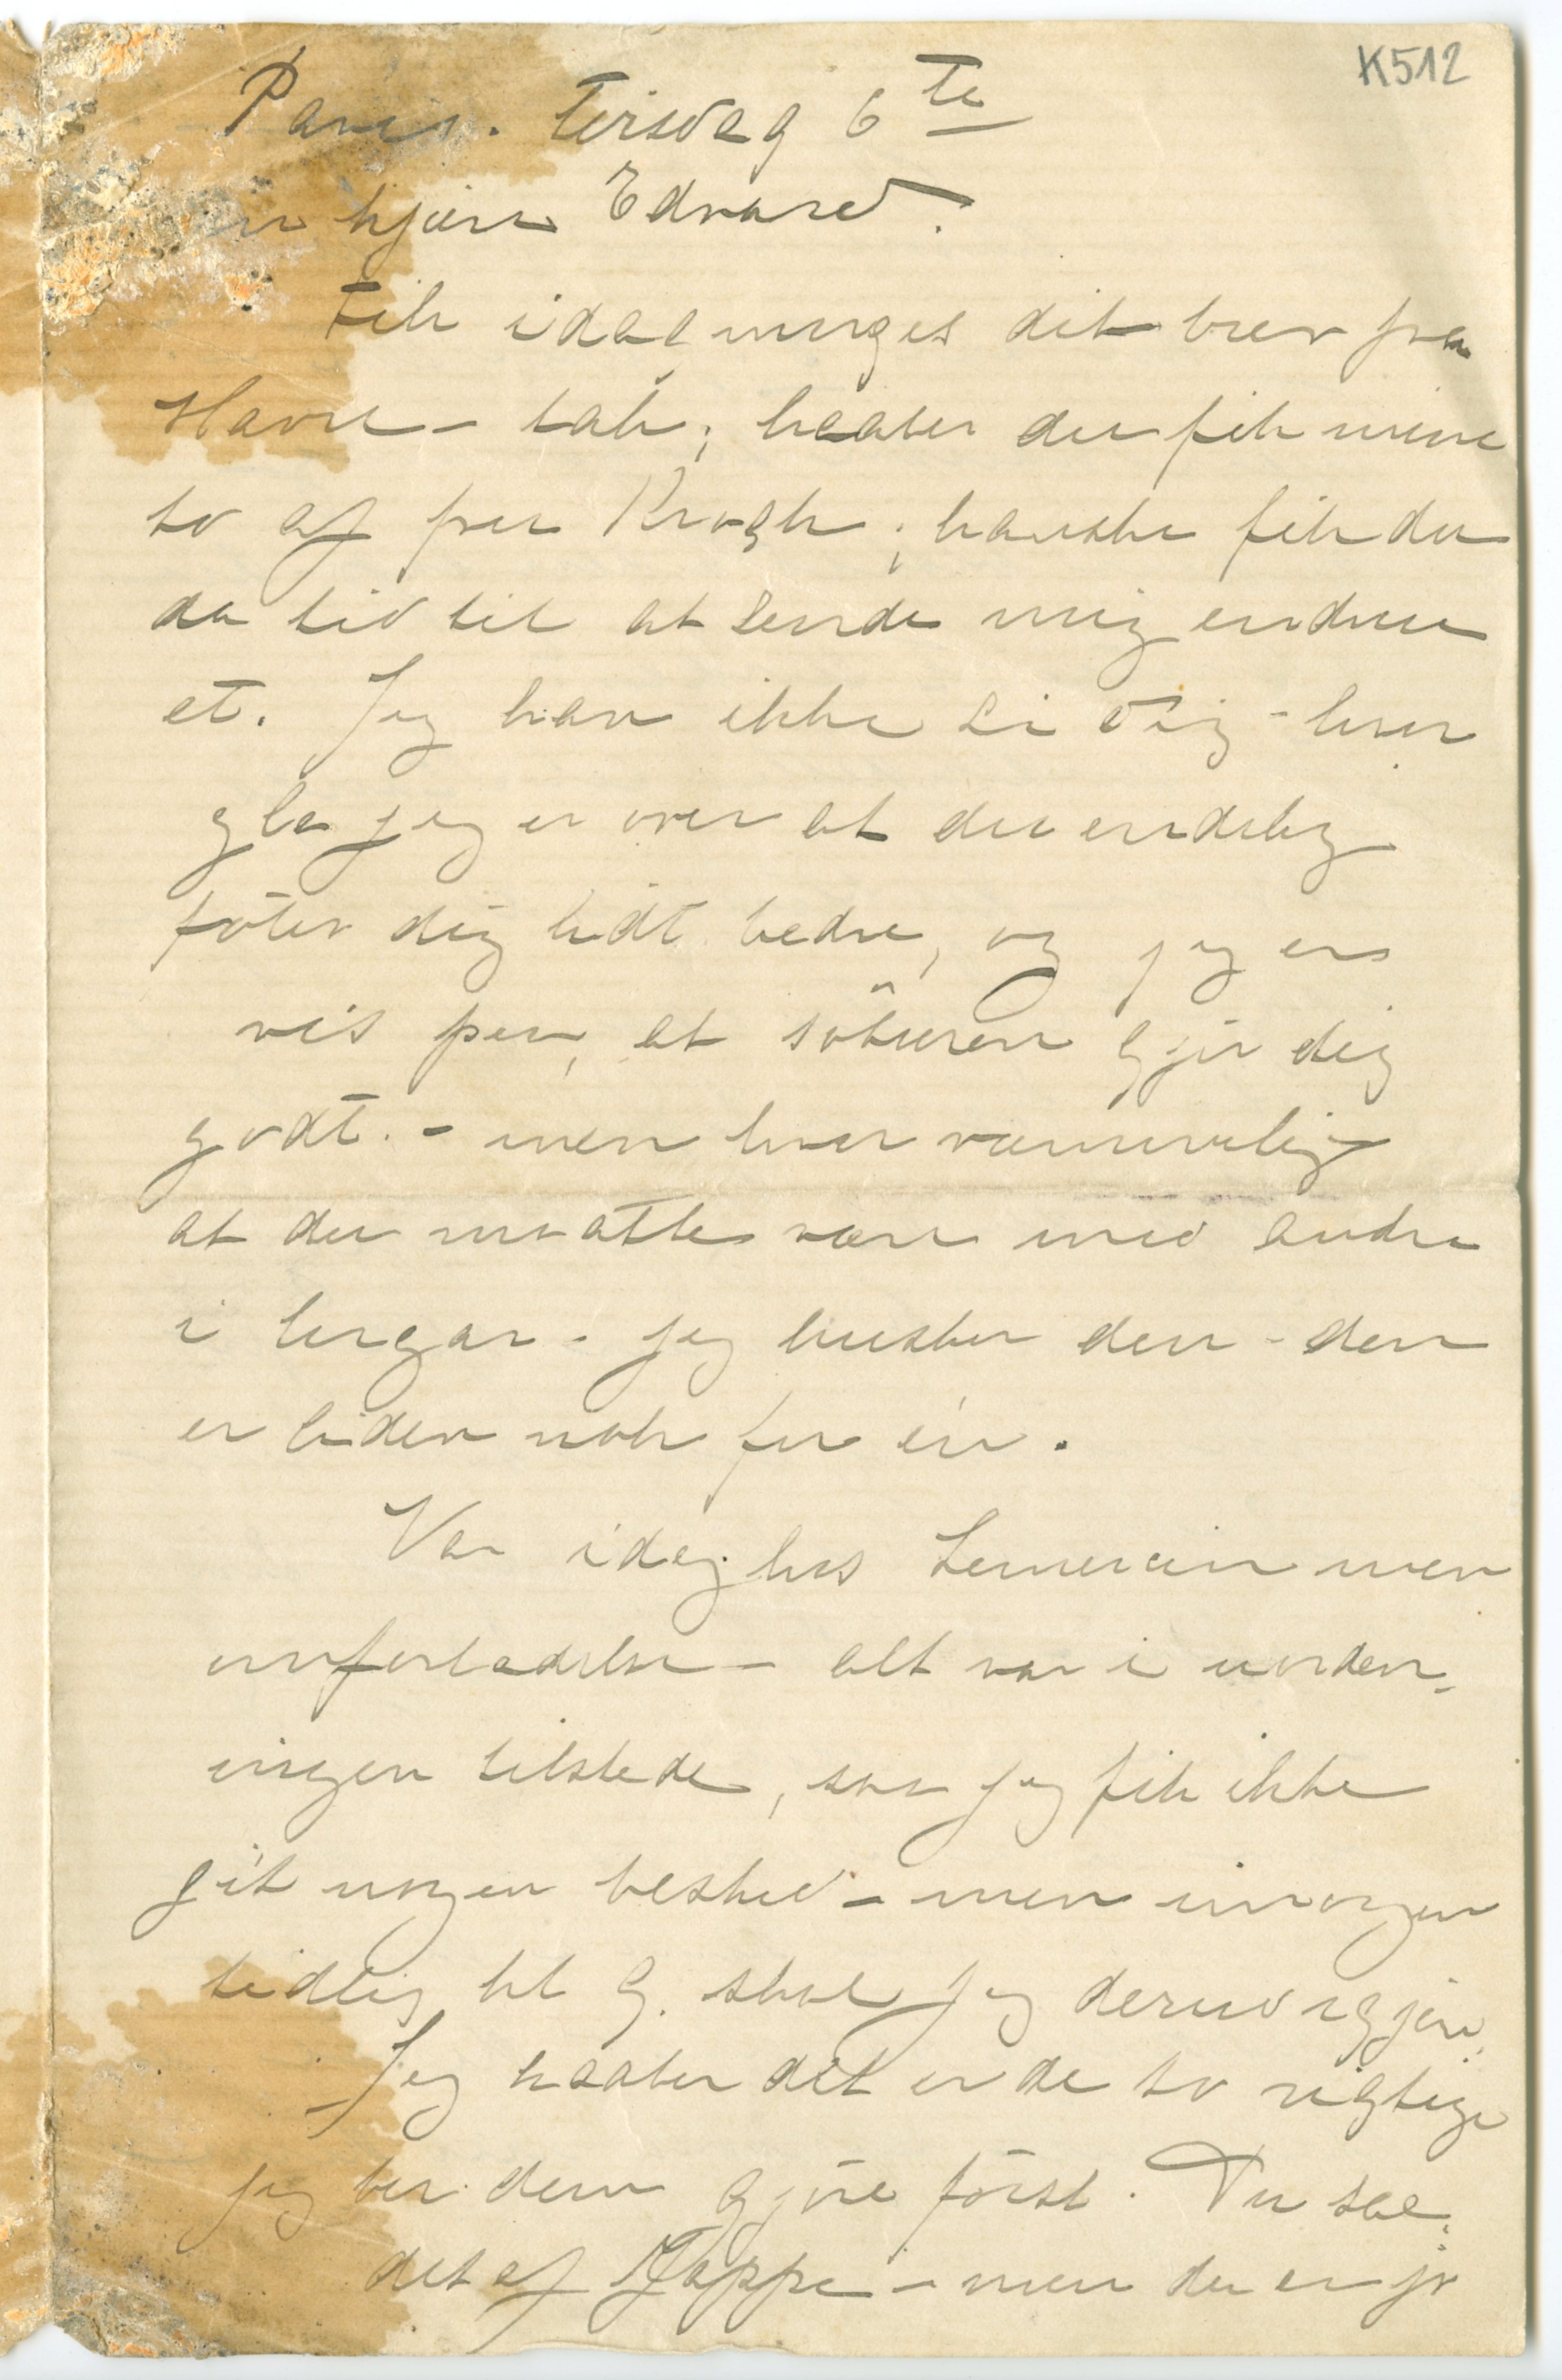 K512
Paris. Tirsdag 6te
kjære Edvard.
Fik idag morges dit brev fra
Havre – tak; haaber du fik mine
to af fru Krogh; kanske fik du
da tid til at sende mig endnu
et. Jeg kan ikke si dig – hvor
gla jeg er over at du endelig
føler dig lidt bedre, og jeg er
vis paa, at søturen gjør dig
godt. – men hvor væmmelig
at du maatte være med andre
i lugar – jeg husker den – den
er liden nok for én.
Var idag hos Lemercier men
umf – alt var i uorden,
ingen tilstede, saa jeg fik ikke
git nogen besked – men imorgen
tidlig kl 9. skal jeg derned igjen.
– Jeg haaber det er de to rigtige
jeg ber dem gjøre først. Du skal
det af Jappe – men du er jo